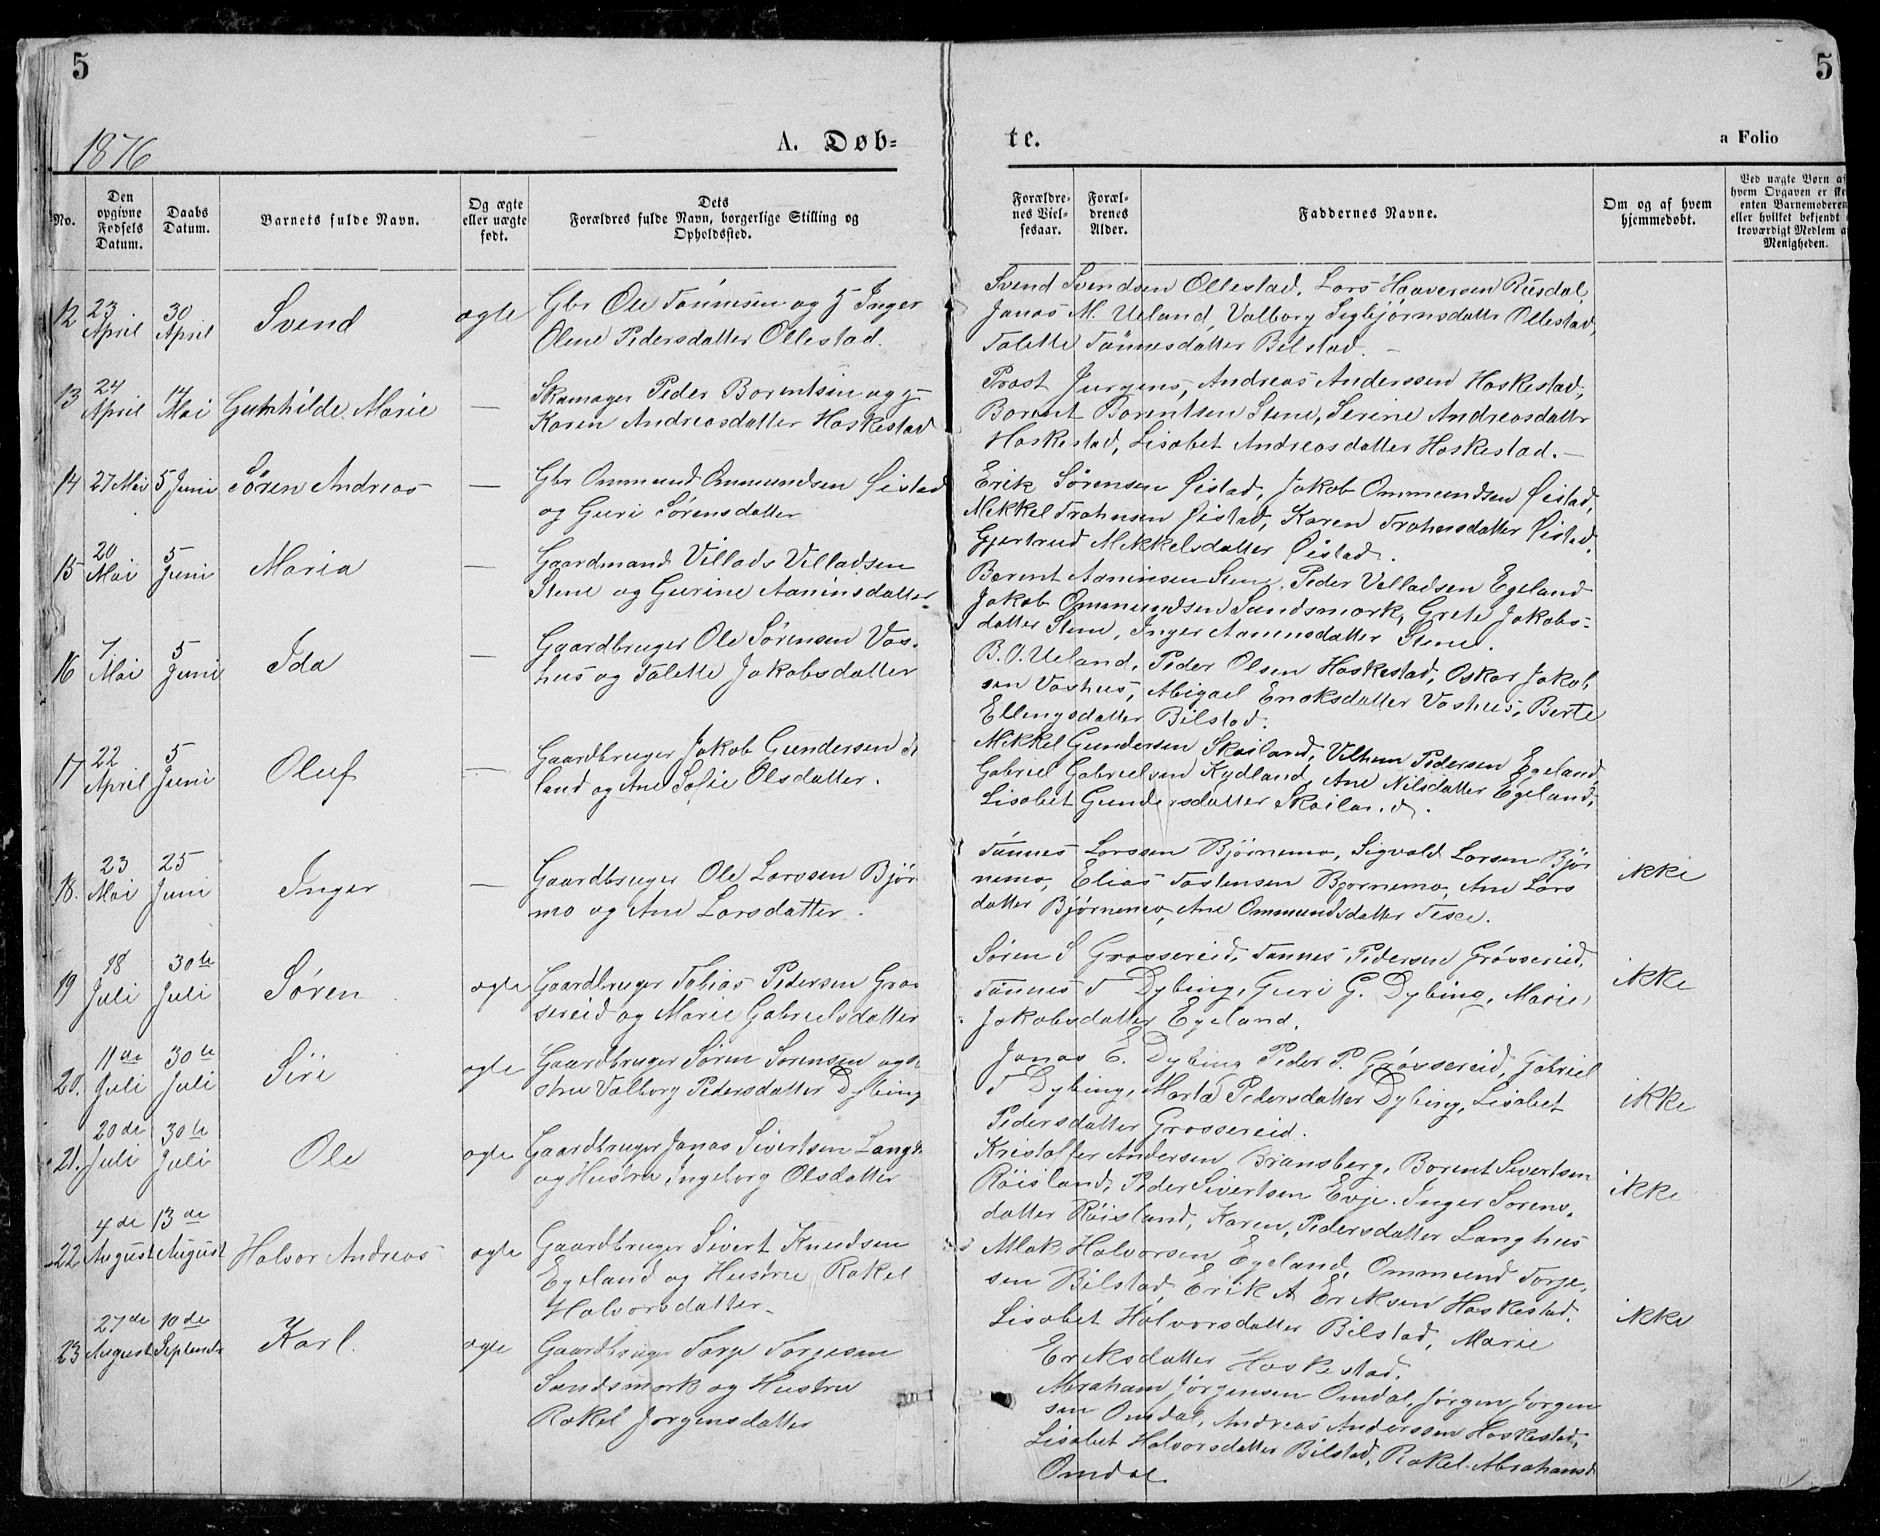 5
5
1876
A. Døb=
te.
a Folio
No.
Den opgivne Fødsels Datum.
Daabs Datum.
Barnets fulde Navn.
Og ægte eller uægte født.
Dets Forældres fulde Navn, borgerlige Stilling og Opholdssted.
Forældrenes Vielsesaar.
Forældrenes Alder.
Faddernes Navne.
Om og af hvem hjemmedøbt.
Ved uægte Børn af hvem Opgaven er
enten Barnemoderen
eller hvilket bekjendt
troværdigt Medlem
Menigheden.
12 23 April 30 April Svend ægte Gbr Ole Tønnesen og H Inger
Oline Pedersdatter Ollestad.
Svend Svendsen Ollestad, Lars Haaversen Rusdal,
Jonas M. Ueland, Valborg Sigbjørnsdattr Ollestad,
Talette Tønnesdatter Bilstad. –
13 24 April 14 Mai Gunhilde Marie — Skomager Peder Berentsen og H
Karen Andreasdatter Haskestad
Prost Jurgens, Andreas Anderssen Haskestad,
Berent Berentsen Stene, Serine Andreasdatter
Haskestad, Lisabet Andreasdatter Haskestad. –
14 27 Mai 5 Juni Søren Andreas — Gbr Ommund Ommundsen Øistad
og Guri Sørensdatter
Erik Sørensen Øistad, Jakob Ommundsen Øistad,
Mikkel Trohnsen Øistad, Karen Trohnsdatter Øistad,
Gjertrud Mikkelsdatter Øistad.
15 20 Mai 5 Juni Maria — Gaardmand Villads Villadsen
Stene og Gurine Aaninsdatter
Berent Aaninsen Stene, Peder Villadsen Egeland
Jakob Ommundsen Sandsmark, Grete Jakobs-
datter Stene, Inger Aaninsdatter Stene.
16 7. Mai 5 Juni Ida — Gaardbruger Ole Sørensen Vas-
hus og Talette Jakobsdatter
B. O. Ueland, Peder Olsen Haskestad, Oskar Jakob
sen Vashus, Abigael Enoksdatter Vashus, Berte
Ellingsdatter Bilstad.
17 22 April 5 Juni Oluf — Gaardbruger Jakob Gundersen
land og Ane Sofie Olsdatter.
Mikkel Gundersen Skailand, Vilhem Pedersen Egeland,
Gabriel Gabrielsen Kydland, Ane Nilsdatter Egeland,
Lisabet Gundersdatter Skailand.
18. 23 Mai 25 Juni Inger — Gaardbruger Ole Larssen Bjør
mo og Ane Larsdatter.
Tønnes Larssen Bjørnemo, Sigvald Larsen Bjør
nemo, Elias Tostensen Bjørnemo, Ane Lars
datter Bjørnemo, Ane Ommundsdatter Tise.
ikke
19 18 Juli 30te Juli Søren ægte Gaardbruger Tobias Pedersen Gros
sereid og Marie Gabrielsdatter
Søren S Grossereid, Tønnes Pedersen Grøssereid,
Tønnes T Dybing, Guri G. Dybing, Marie
Jakobsdatter Egeland.
ikke
20. 11de Juli 30te Juli Siri ægte Gaardbruger Søren Sørensen og
stru Valborg Pedersdatter Dybing
Jonas E. Dybing Peder P. Grøssereid, Gabriel
T Dybing, Marta Pedersdatter Dybing, Lisabet
Pedersdatter Grossereid.
ikke
21. 20de Juli 30te Juli Ole ægte Gaardbruger Jonas Sivertsen Langh
og Hustru Ingeborg Olsdatter
Kristoffer Andersen Bransberg, Berent Sivertsen
Røisland, Peder Sivertsen Evje. Inger Sørens-
datter Røisland, Karen Pedersdatter Langhus
ikke
22 4de August 13de August Halvor Andreas ægte Gaardbruger Sivert Knudsen
Egeland og Hustru Rakel
Halvorsdatter
Mlak Halvorsen Egeland, Ommund Torje-
sen Bilstad, Erik A Eriksen Haskestad.
Lisabet Halvorsdatter Bilstad, Marie
Eriksdatter Haskestad.
ikke
23 27de August 10de Septemb Karl. ægte Gaardbruger Torje Torjesen
Sandsmark og Hustru
Rakel Jørgensdatter
Abraham Jørgensen Omdal, Jørgen Jørgen
sen Omdal, Andreas Anderssen Haskestad,
Lisabet Halvorsdatter Bilstad, Rakel Abrahamsd
Omdal